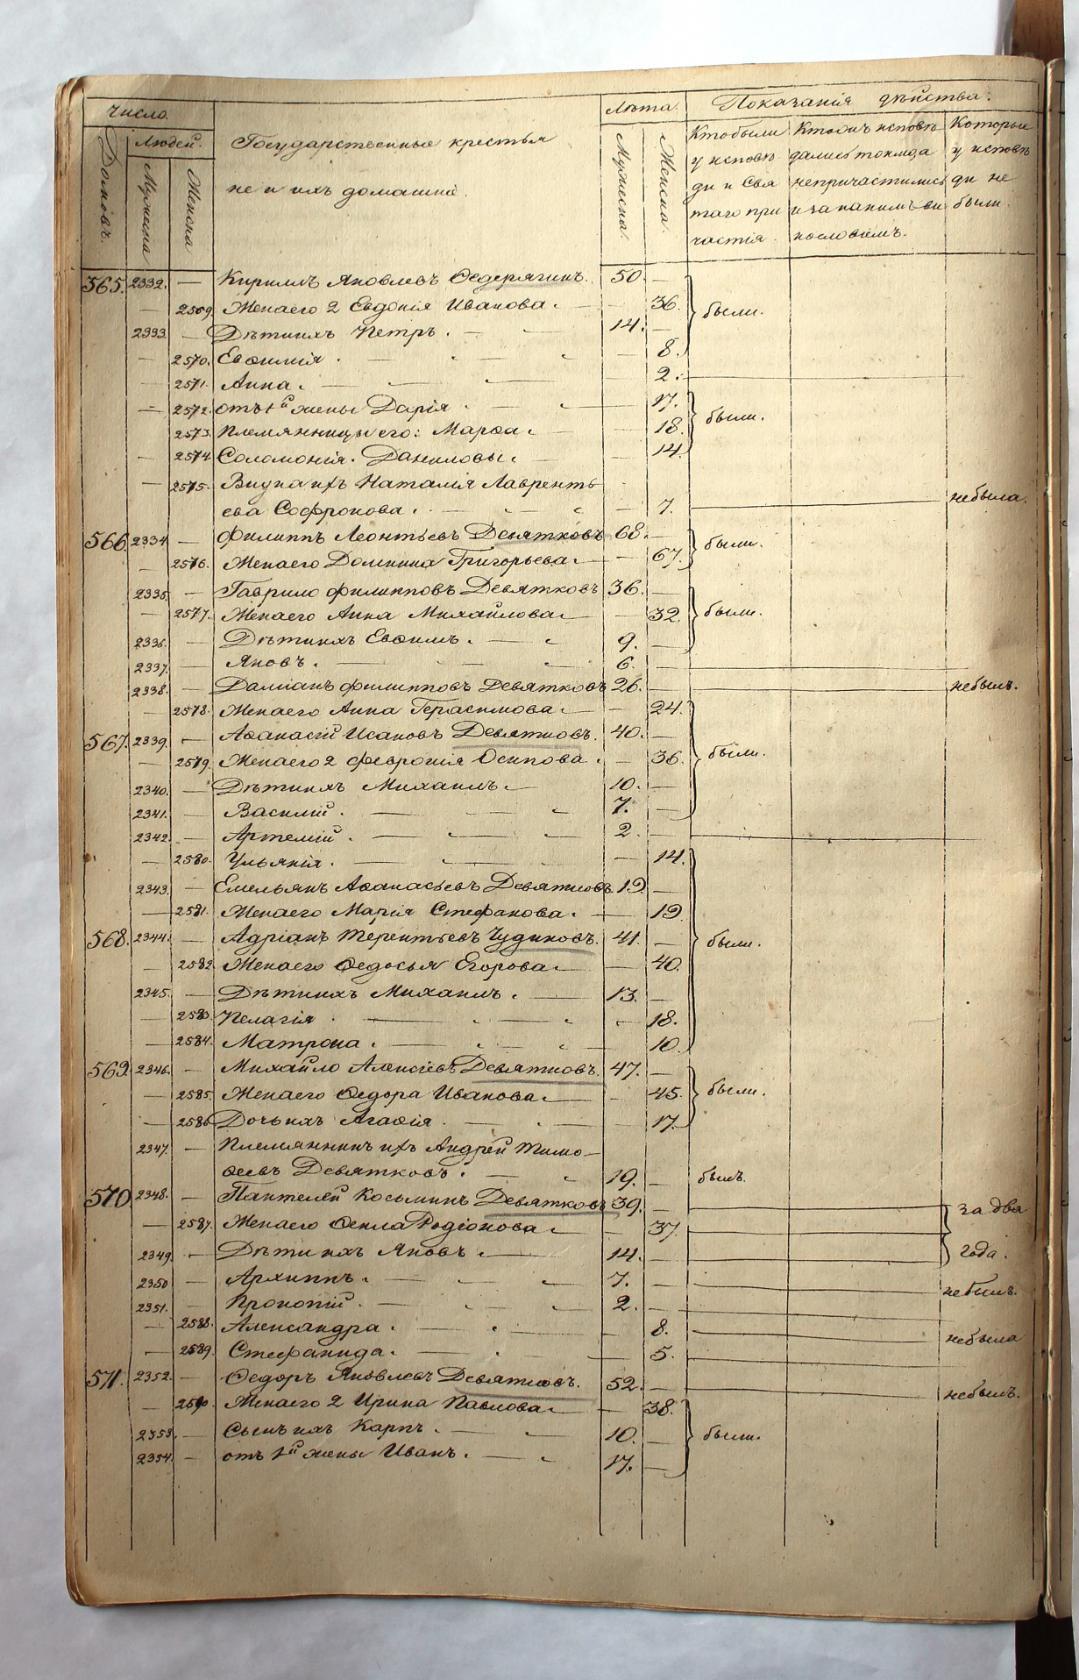 Число. Лѣта. Показанія дѣйства.
Домовъ. Людей. Мужеска Женска Государственные крестья Мужеска. Женска. Кто были Кто онъ исповѣ Которые
у исповѣ дались токмо а у исповѣ
не и ихъ домашніе. ди и Свя не причастились ди не
таго при и за какимъ ви были.
частія. нословіемъ.
565. 2332. — Кирилъ Яковлевъ Ѳедерягинъ. 50. —
— 2509 Жена его 2 Евдокія Иванова. — 36. были.
2333. — Дѣти ихъ Петръ. 14. —
— 2570. Евѳимія. — 8.
— 2571. Анна. — 2.
— 2572. отъ 1й жены Дарія. — 17.
— 2573. Племянницы его: Марѳа. — 18. были.
— 2574. Соломонія. Даниловы. — 14.
— 2575. Внука ихъ Наталія Лавренть
ева Софронова. — 7. не была.
566. 2334. — Филиппъ Леонтьевъ Девятковъ 68. —
— 2576. Жена его Домника Григорьева. — 67. были.
2335. — Гаврило Филипповъ Девятковъ 36. —
— 2577. Жена его Анна Михайлова — 32. были.
2336. — Дѣти ихъ Евѳимъ. 9. —
2337. — Яковъ. 6. —
2338. — Даміанъ Филипповъ Девятковъ 26. — не былъ.
— 2578. Жена его Анна Герасимова. — 24.
567. 2339. — Аѳанасій Исаковъ Девятковъ. 40. —
— 2579. Жена его 2 Февронія Осипова. — 36. были.
2340. — Дѣти ихъ Михаилъ. 10. —
2341. — Василій. 7. —
2342. — Артемій. 2. —
— 2580. Ульянія. — 14.
2343. — Емельянъ Аѳанасьевъ Девятковъ 19. —
— 2581. Жена его Марія Стефанова. — 19.
568. 2344. — Адріанъ Терентьевъ Чудиновъ. 41. — были.
— 2582. Жена его Ѳедосья Егорова. — 40.
2345. — Дѣти ихъ Михаилъ. 13. —
— 2583. Пелагія — 18.
— 2584. Матрона. — 10.
569. 2346. — Михайло Алексѣевъ Девятковъ. 47. —
— 2585. Жена его Ѳедора Иванова. — 45. были.
— 2586 Дочь ихъ Агаѳія. — 17.
2347. — Племянникъ ихъ Андрей Тимо—
ѳеевъ Девятковъ. 19. — былъ.
570. 2348. — Пантелей Косьминъ Девятковъ 39. — за два
— 2587. Жена его Ѳекла Родіонова. — 37.
2349. — Дѣти ихъ Яковъ. 14. — года.
2350 — Архиппъ. 7. — не былъ.
2351. — Прокопій. 2. —
— 2588. Александра. — 8. не была
— 2589. Стефанида. — 5.
571. 2352. — Ѳедоръ Яковлевъ Девятковъ. 52. — не былъ.
— 2590. Жена его 2 Ирина Павлова. — 38.
2353. — Сынъ ихъ Карпъ. 10. — были.
2354. — отъ 1й жены Иванъ. 17. —